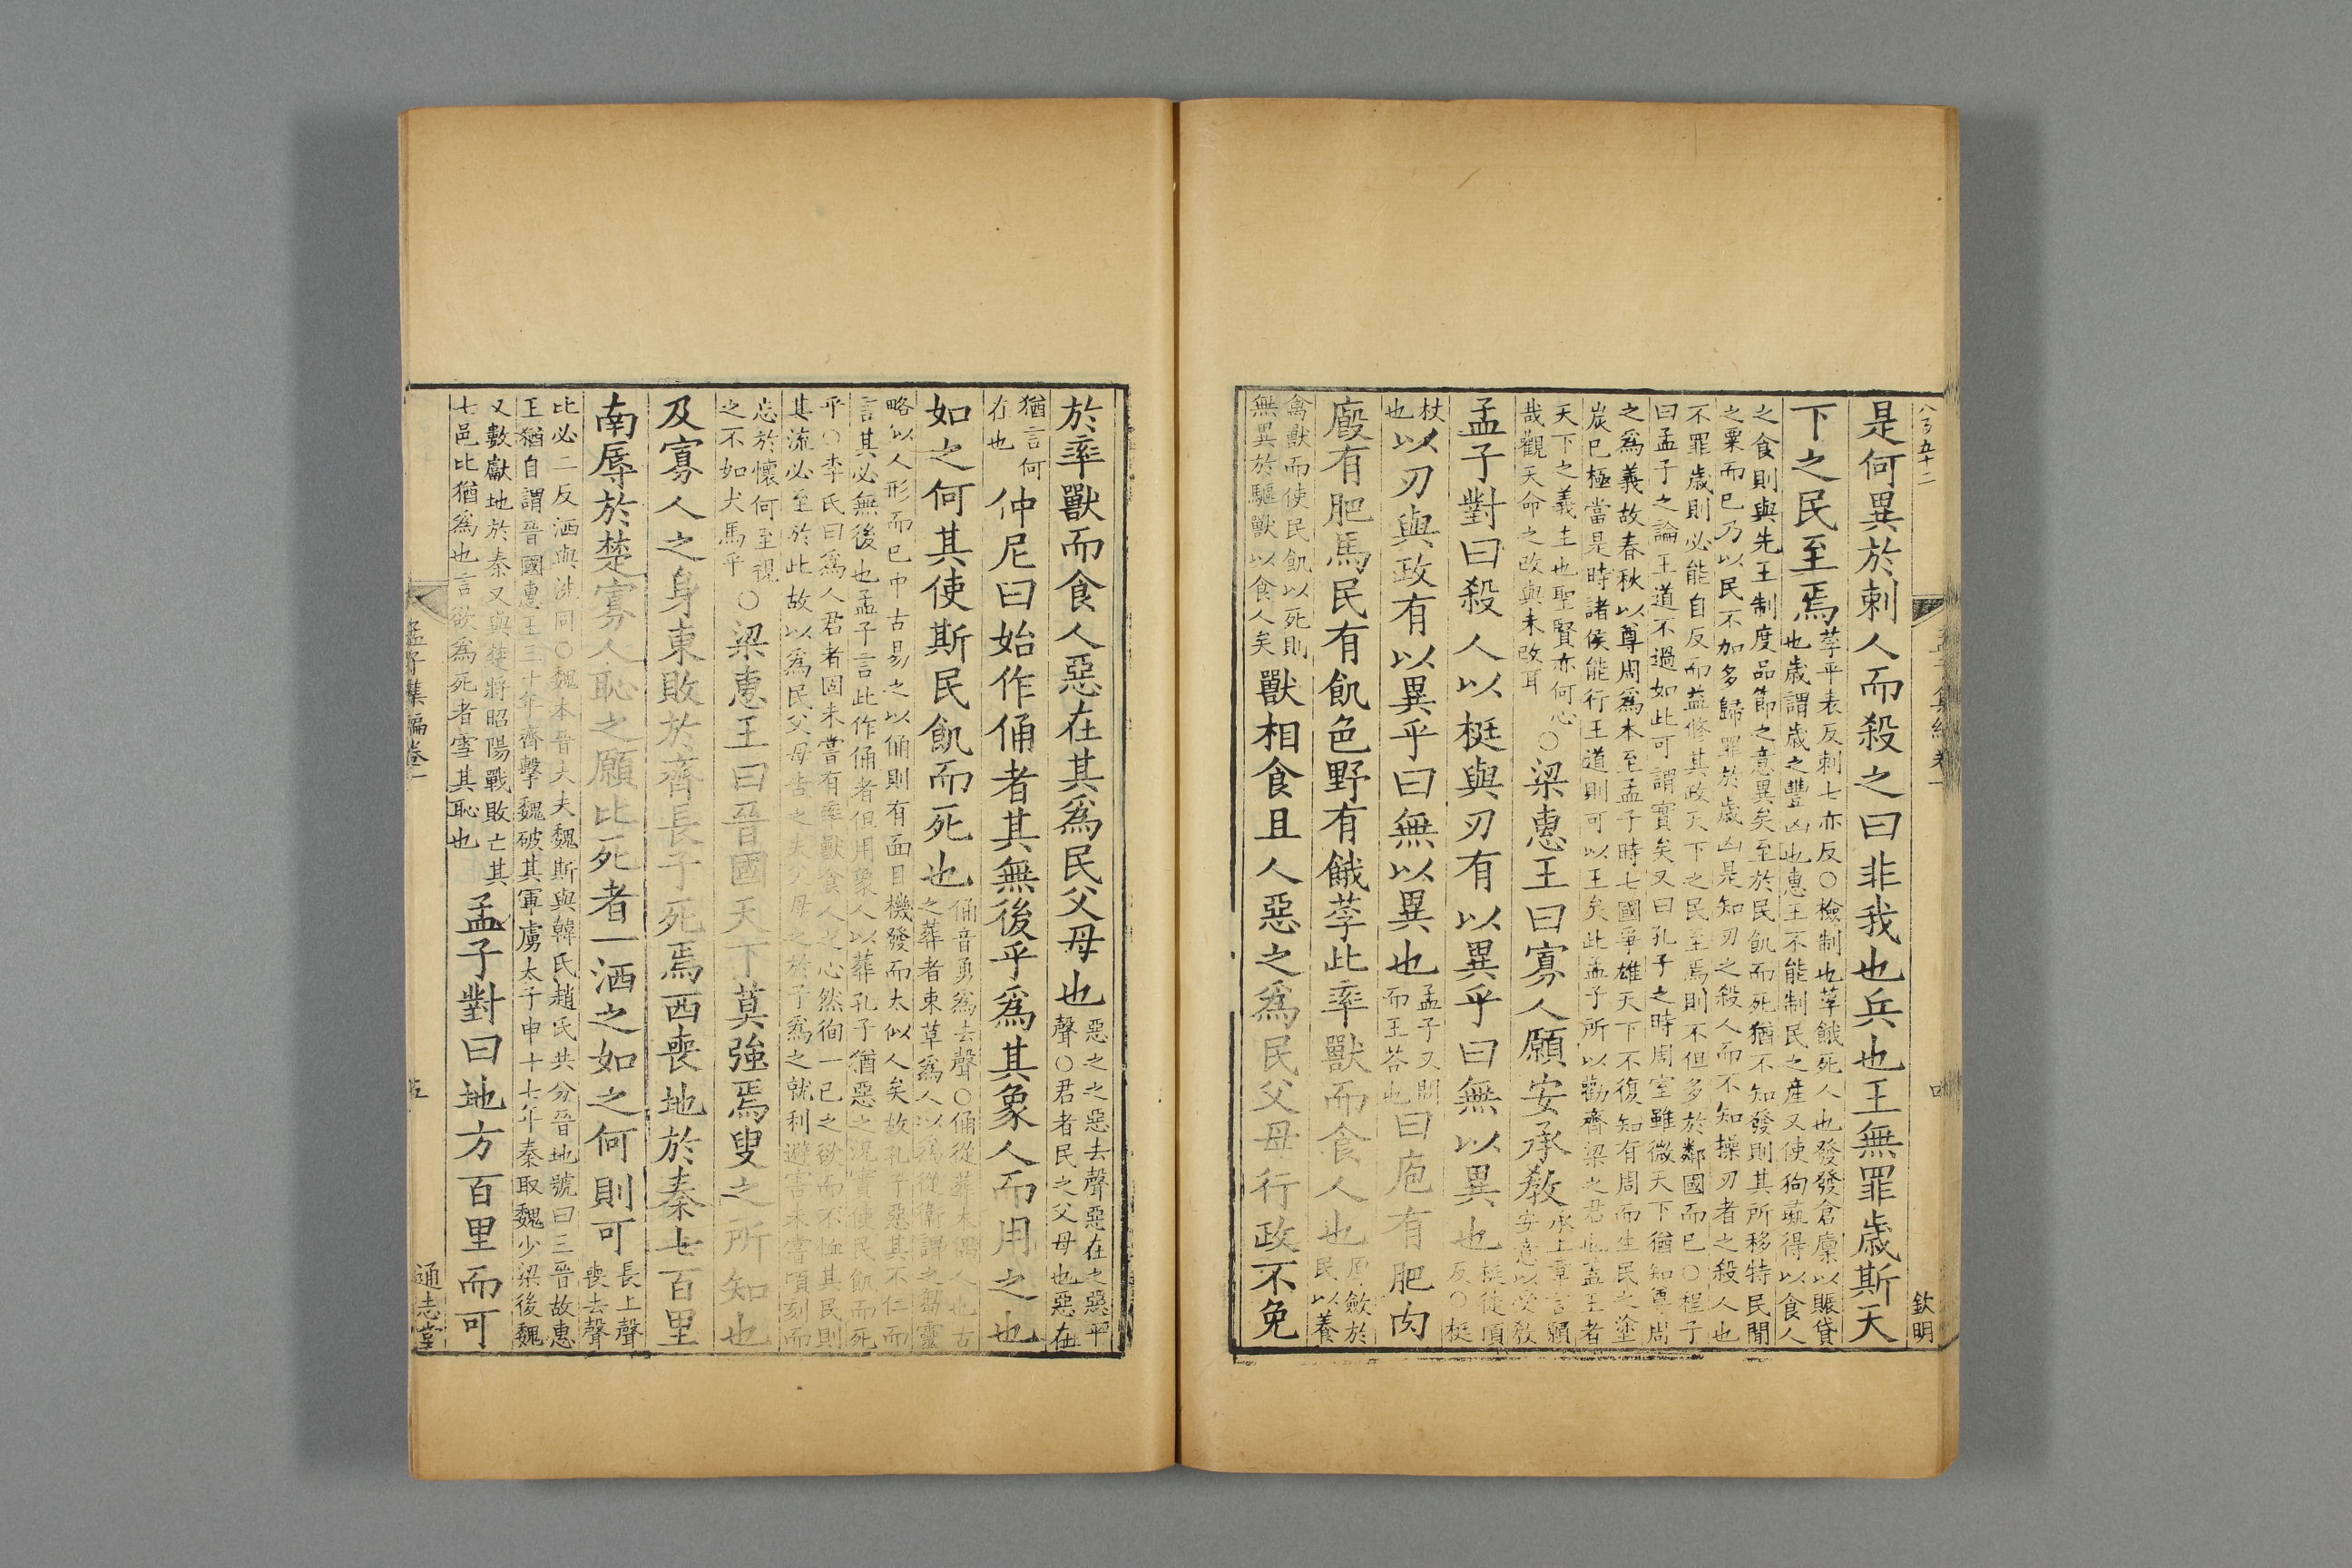 八百五十二
欽明
四
是何異於刺人而殺之曰非我也兵也王無罪歳斯天
下之民至焉
莩平表反刺七亦反○檢制也莩餓死人也發發倉廩以賑貸
也歳謂歳之豐凶也惠王不能制民之產又使狗彘得以食人
之食則與先王制度品節之意異矣至於民飢而死猶不知發則其所移特民間
之粟而已乃以民不加多歸罪於歳凶是知刃之殺人而不知操刃者之殺人也
不罪歳則必能自反而益修其政天下之民至焉則不但多於鄰國而已○程子
曰孟子之論王道不過如此可謂實矣又曰孔子之時周室雖微天下猶知尊周
之爲義故春秋以尊周爲本至孟子時七國爭雄天下不復知有周而生民之塗
炭已極當是時諸侯能行王道則可以王矣此孟子所以勸齊梁之君也蓋王者
天下之義主也聖賢亦何心
哉觀天命之改與未改耳
○梁惠王曰寡人願安承敎
承上章言願
安意以受敎
孟子對曰殺人以梃與刃有以異乎曰無以異也
梃徒頂
反○梃
杖
也
以刃與政有以異乎曰無以異也
孟子又問
而王荅也
曰庖有肥肉
廄有肥馬民有飢色野有餓莩此率獸而食人也
厚斂於
民以養
禽獸而使民飢以死則
無異於驅獸以食人矣
獸相食且人惡之爲民父母行政不免
於率獸而食人惡在其爲民父母也
惡之之惡去聲惡在之惡平
聲○君者民之父母也惡在
猶言何
在也
仲尼曰始作俑者其無後乎爲其象人而用之也
如之何其使斯民飢而死也
俑音勇爲去聲○俑從葬木偶人也古
之葬者束草爲人以爲從衛謂之芻靈
略似人形而已中古易之以俑則有面目機發而太似人矣故孔子惡其不仁而
言其必無後也孟子言此作俑者但用象人以葬孔子猶惡之況實使民飢而死
乎○李氏曰爲人君者固未嘗有率獸食人之心然徇一己之欲而不恤其民則
其流必至於此故以爲民父母告之夫父母之於子爲之就利避害未嘗頃刻而
忘於懷何至視
之不如犬馬乎
○梁惠王曰晉國天下莫強焉叟之所知也
及寡人之身東敗於齊長子死焉西喪地於秦七百里
南辱於楚寡人恥之願比死者一洒之如之何則可
長上聲
喪去聲
比必二反洒與洗同○魏本晉大夫魏斯與韓氏趙氏共分晉地號曰三晉故惠
王猶自謂晉國惠王三十年齊擊魏破其軍虜太子申十七年秦取魏少梁後魏
又數獻地於秦又與楚將昭陽戰敗亡其
七邑比猶爲也言欲爲死者雪其恥也
孟子對曰地方百里而可
孟子集編卷一
五
通志堂